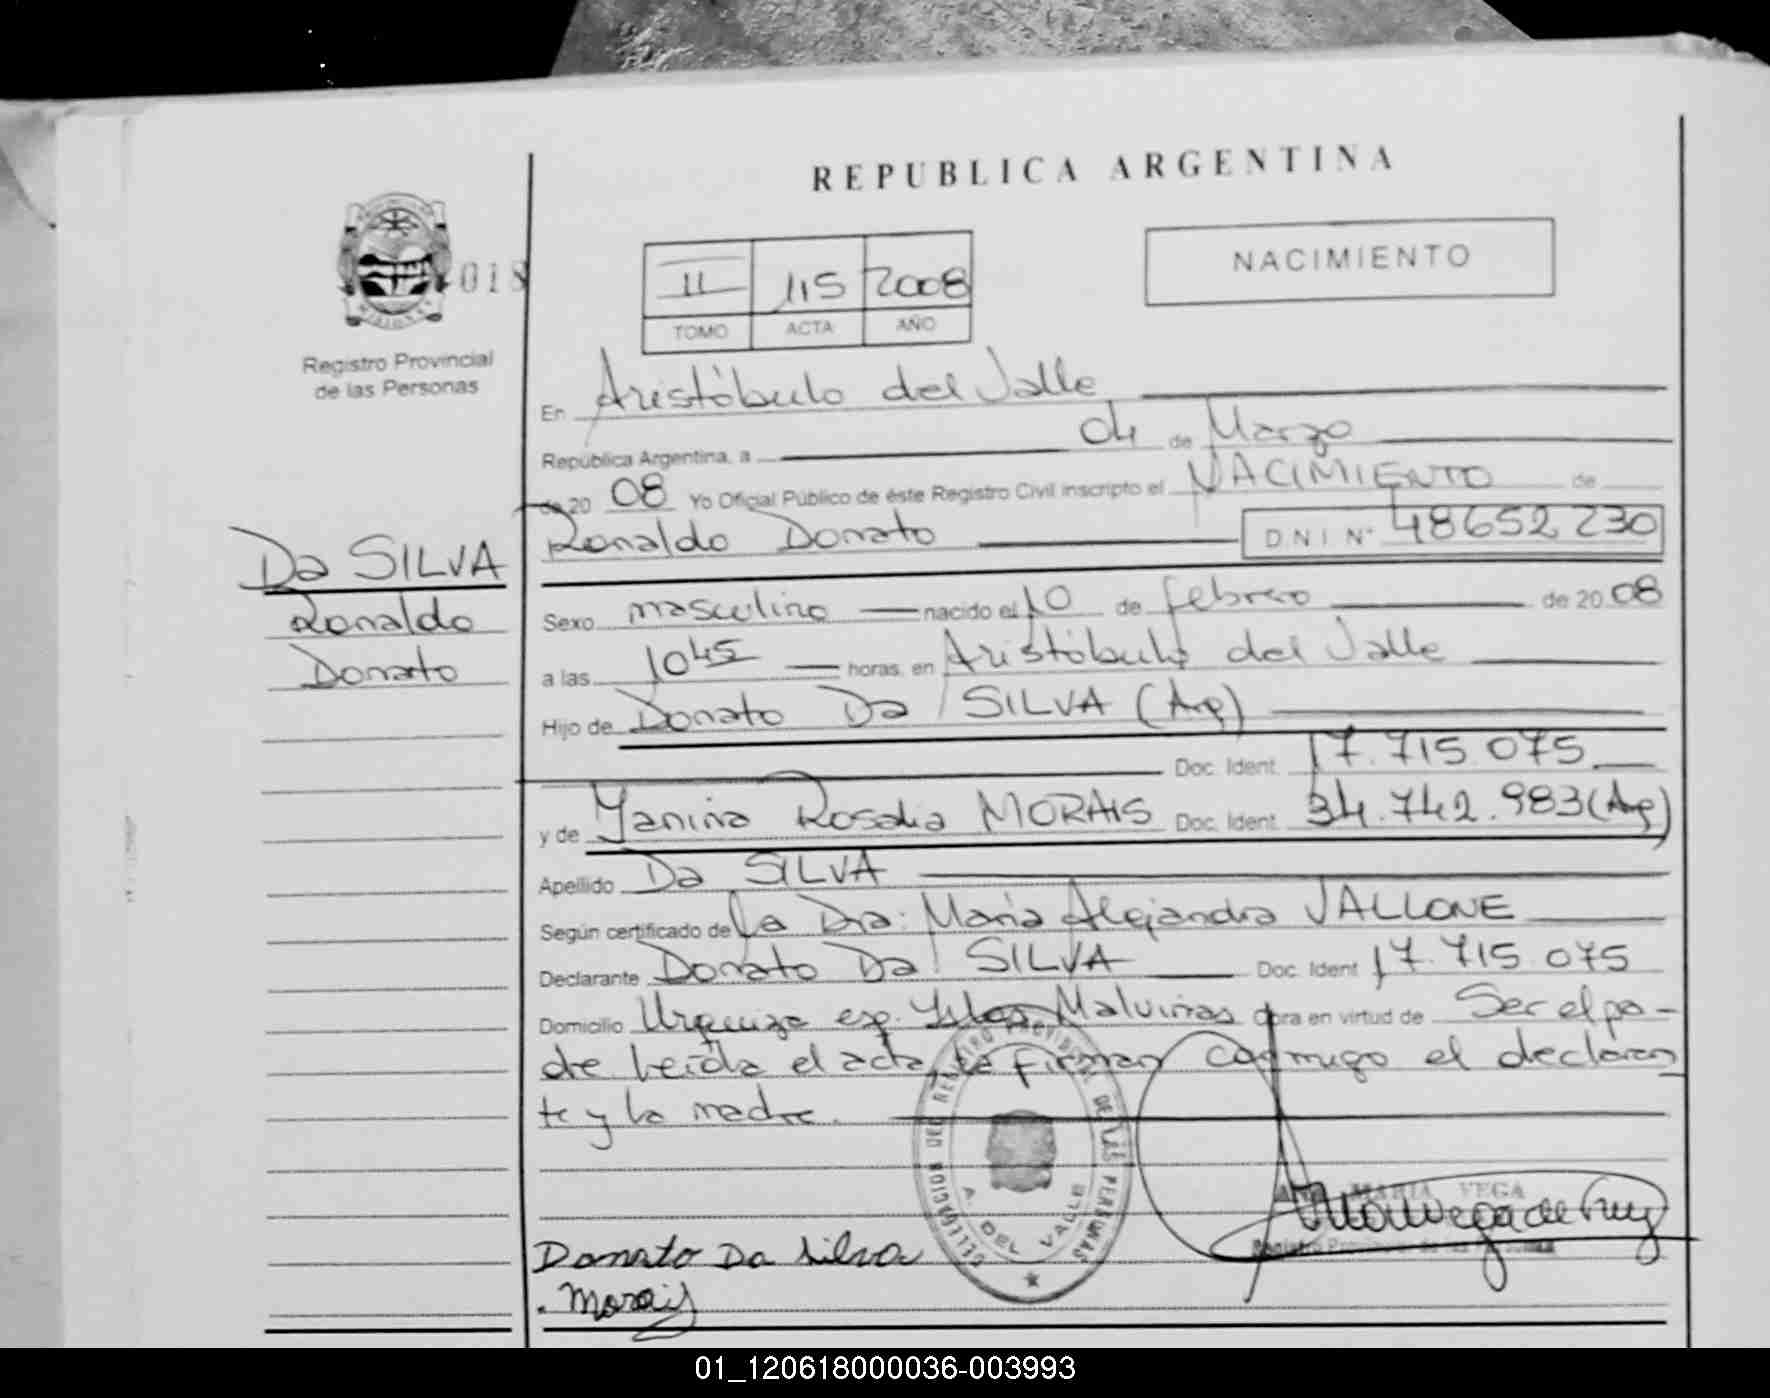 REPUBLICA ARGENTINA
NACIMIENTO
018
II 115 2008
TOMO ACTA AÑO
Registro Provincial
de las Personas
En Aristóbulo del Valle
República Argentina, a 04 de Marzo
de 20 08 Yo Oficial Público de éste Registro Civil inscripto el NACIMIENTO de
Ronaldo Donato D N I Nº 48652230
Da SILVA
Ronaldo
Donato
Sexo masculino nacido el 10 de febrero de 20 08
a las 10 45 horas, en Aristóbulo del Valle
Hijo de Donato Da SILVA (Arg)
Doc. Ident. 17.715.075
y de Yanina Rosalia MORAIS Doc. Ident. 34.742.983 (Arg)
Apellido Da SILVA
Según certificado de La Dra: Maria Alejandra VALLONE
Declarante Donato Da SILVA Doc. Ident 17.715.075
Domicilio Urquiza esq. Islas Malvinas obra en virtud de Ser el pa-
dre leída el acta la firman conmigo el declaran
te y la madre.
DELEGACION DEL REGISTRO PROVINCIAL DE LAS PERSONAS
A. DEL VALLE
MARIA VEGA
Registro Provincial de las Personas
Donato Da Silva
Morais
01_120618000036-003993